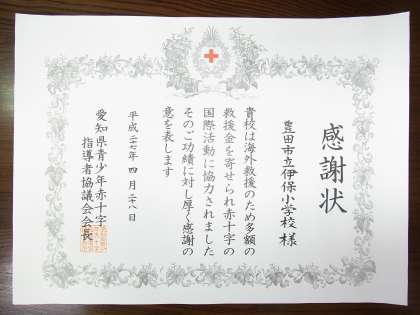 感謝状
豊田市立伊保小学校 様
貴校は海外救援のため多額の
救援金を寄せられ赤十字の
国際活動に協力されました
そのご功績に対し厚く感謝の
意を表します
平成二十七年 四月 二十八日
愛知県青少年赤十字
指導者協議会会長